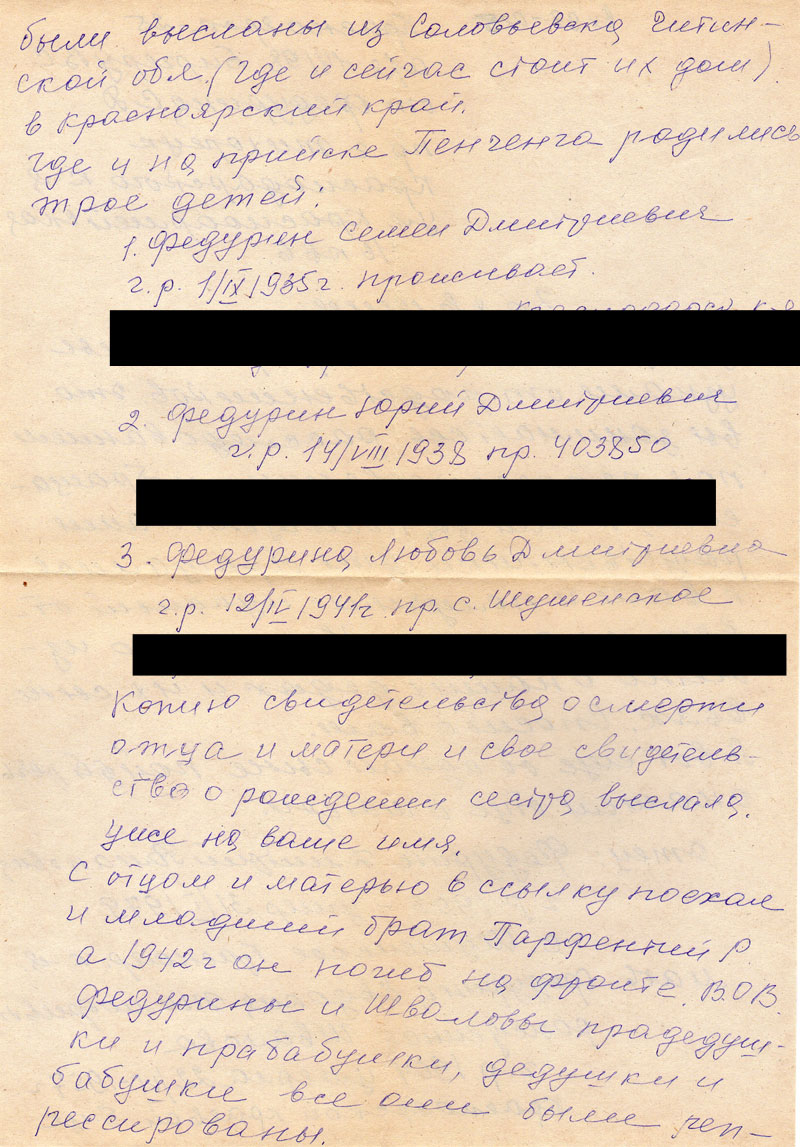 были высланы из Соловьевска Читин-
ской обл. (где и сейчас стоит их дом)
в красноярский край.
где и на прииске Пенченга родились
трое детей.
1. Федурин Семен Дмитриевич
г.р. 1/IX 1935г. проживает.
2. Федурин Юрий Дмитриевич
г.р. 14/VIII 1938 пр. 403850
3. Федурина Любовь Дмитриевна
г.р. 12/IV 1941г. пр. с. Шушенское
Копию свидетельства о смерти
отца и матери и свое свидетель-
ство о рождении сестра выслала,
уже на ваше имя.
С отцом и матерью в ссылку поехал
и младший брат Парфентий Р.
а 1942г он погиб на фронте. В.О.В.
Федурины и Шваловы прадедуш-
ки и прабабушки, дедушки и
бабушки все они были реп-
рессированы.